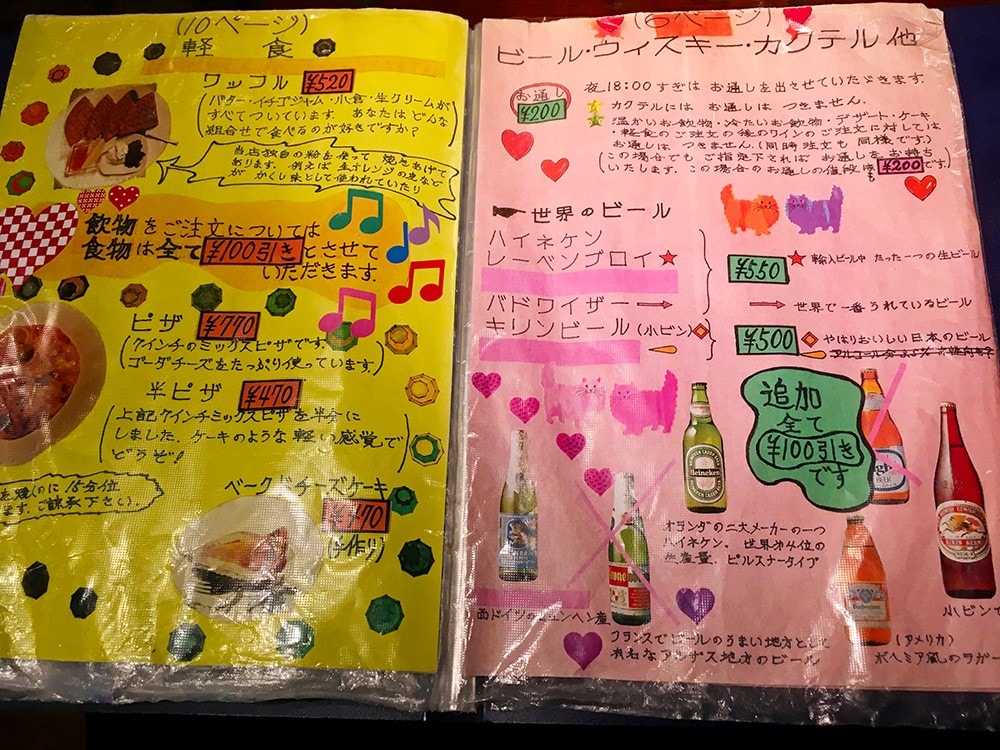 (10ページ)
軽食
ワッフル ¥520
(バター・イチゴジャム・小倉・生クリームが
すべてついています. あなたはどんな
組合せで食べるのが好きですか?
当店独自の粉を使って 焼きあげて
あります. 例えば
が かくし味として使われていたり
飲物をご注文については
食物は全て¥100引きとさせて
いただきます.
ピザ ¥770
(7インチのミックスピザです.
ゴーダチーズをたっぷり使っています)
半ピザ ¥470
(上記7インチミックスピザを半分に
しました. ケーキのような軽い感覚で
どうぞ!)
焼くのに15分位
ます. ご諒承下さい.
ベークドチーズケーキ
¥470
(手作り)
(6ページ)
ビール・ウィスキー・カクテル他
お通し
¥200
夜18:00すぎはお通しを出させていただきます.
カクテルには お通しは つきません.
温かいお飲物・冷たいお飲物・デザート・ケーキ
・軽食のご注文の後のワインのご注文に対しては
お通しは つきません.(同時注文も同様です.)
(この場合でも ご指定下されば お通しを お持ち
いたします. この場合のお通しの値段も¥200です.)
世界のビール
ハイネケン
レーベンブロイ★
¥550
★輸入ビール中 たった一つの生ビール
バドワイザー →
→ 世界で一番うれているビール
キリンビール(小ビン)
¥500
やはりおいしい日本のビール
追加
全て
¥100引き
です
Heineken
Budweiser
KIRIN BEER
オランダの二大メーカーの一つ
ハイネケン. 世界第4位の
生産量. ピルスナータイプ
西ドイツのミュンヘン産
フランスでビールのうまい地方として
有名なアルザス地方のビール
小ビン
(アメリカ)
ボヘミア風のラガー